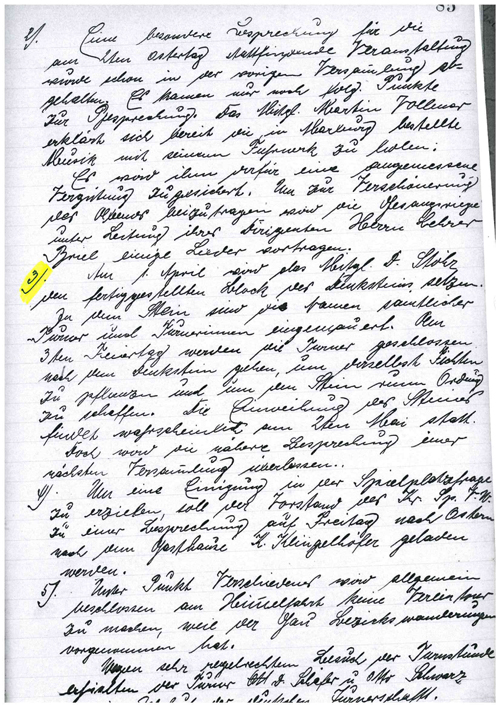 85
2). Eine besondere Besprechung für die
am 2ten Ostertag stattfindende Veranstaltung
wurde schon in der vorigen Versammlung ab-
gehalten. Es kamen nur noch folg. Punkte
zur Besprechung. Das Mitgl. Martin Vollmer
erklärt sich bereit die in Marburg bestellte
Musik mit seinem Fuhrwerk zu holen.
Es wird ihm dafür eine angemessene
Vergütung zugesichert. Um zur Verschönerung
des Abends beizutragen wird die Gesangriege
unter Leitung ihres Dirigenten Herrn Lehrer
Briel einige Lieder vortragen.
3). Am 1. April wird das Mitgl. D.
den fertiggestellten Block des Denksteins setzen.
In dem Stein sind die Namen sämtlicher
Turner und Turnerinnen eingemauert. Am
3ten Feiertag werden die Turner geschlossen
nach dem Denkstein gehen, um derselbst Fichten
zu pflanzen und um den Stein rum Ordnung
zu schaffen. Die Einweihung des Steines
findet wahrscheinlich am 2ten Mai statt.
Doch wird die nähere Besprechung einer
nächsten Versammlung überlassen.
4). Um eine Einigung in der Spielplatzfrage
zu erzielen, soll der Vorstand des Kr. Sp. V.
zu einer Besprechung auf Freitag nach Ostern
nach dem Gasthause K. Klingelhöfer geladen
werden.
5). Unter Punkt Verschiedenes wird allgemein
beschlossen am Himmelfahrt keine Vereinstour
zu machen, weil der Gau Bezirkswanderungen
vorgenommen hat.
Wegen sehr regelrechtem Besuch der Turnstunde
erhielten der Turner D. Schäfer u. Otto Schwarz
der deutschen Turnerschaft.